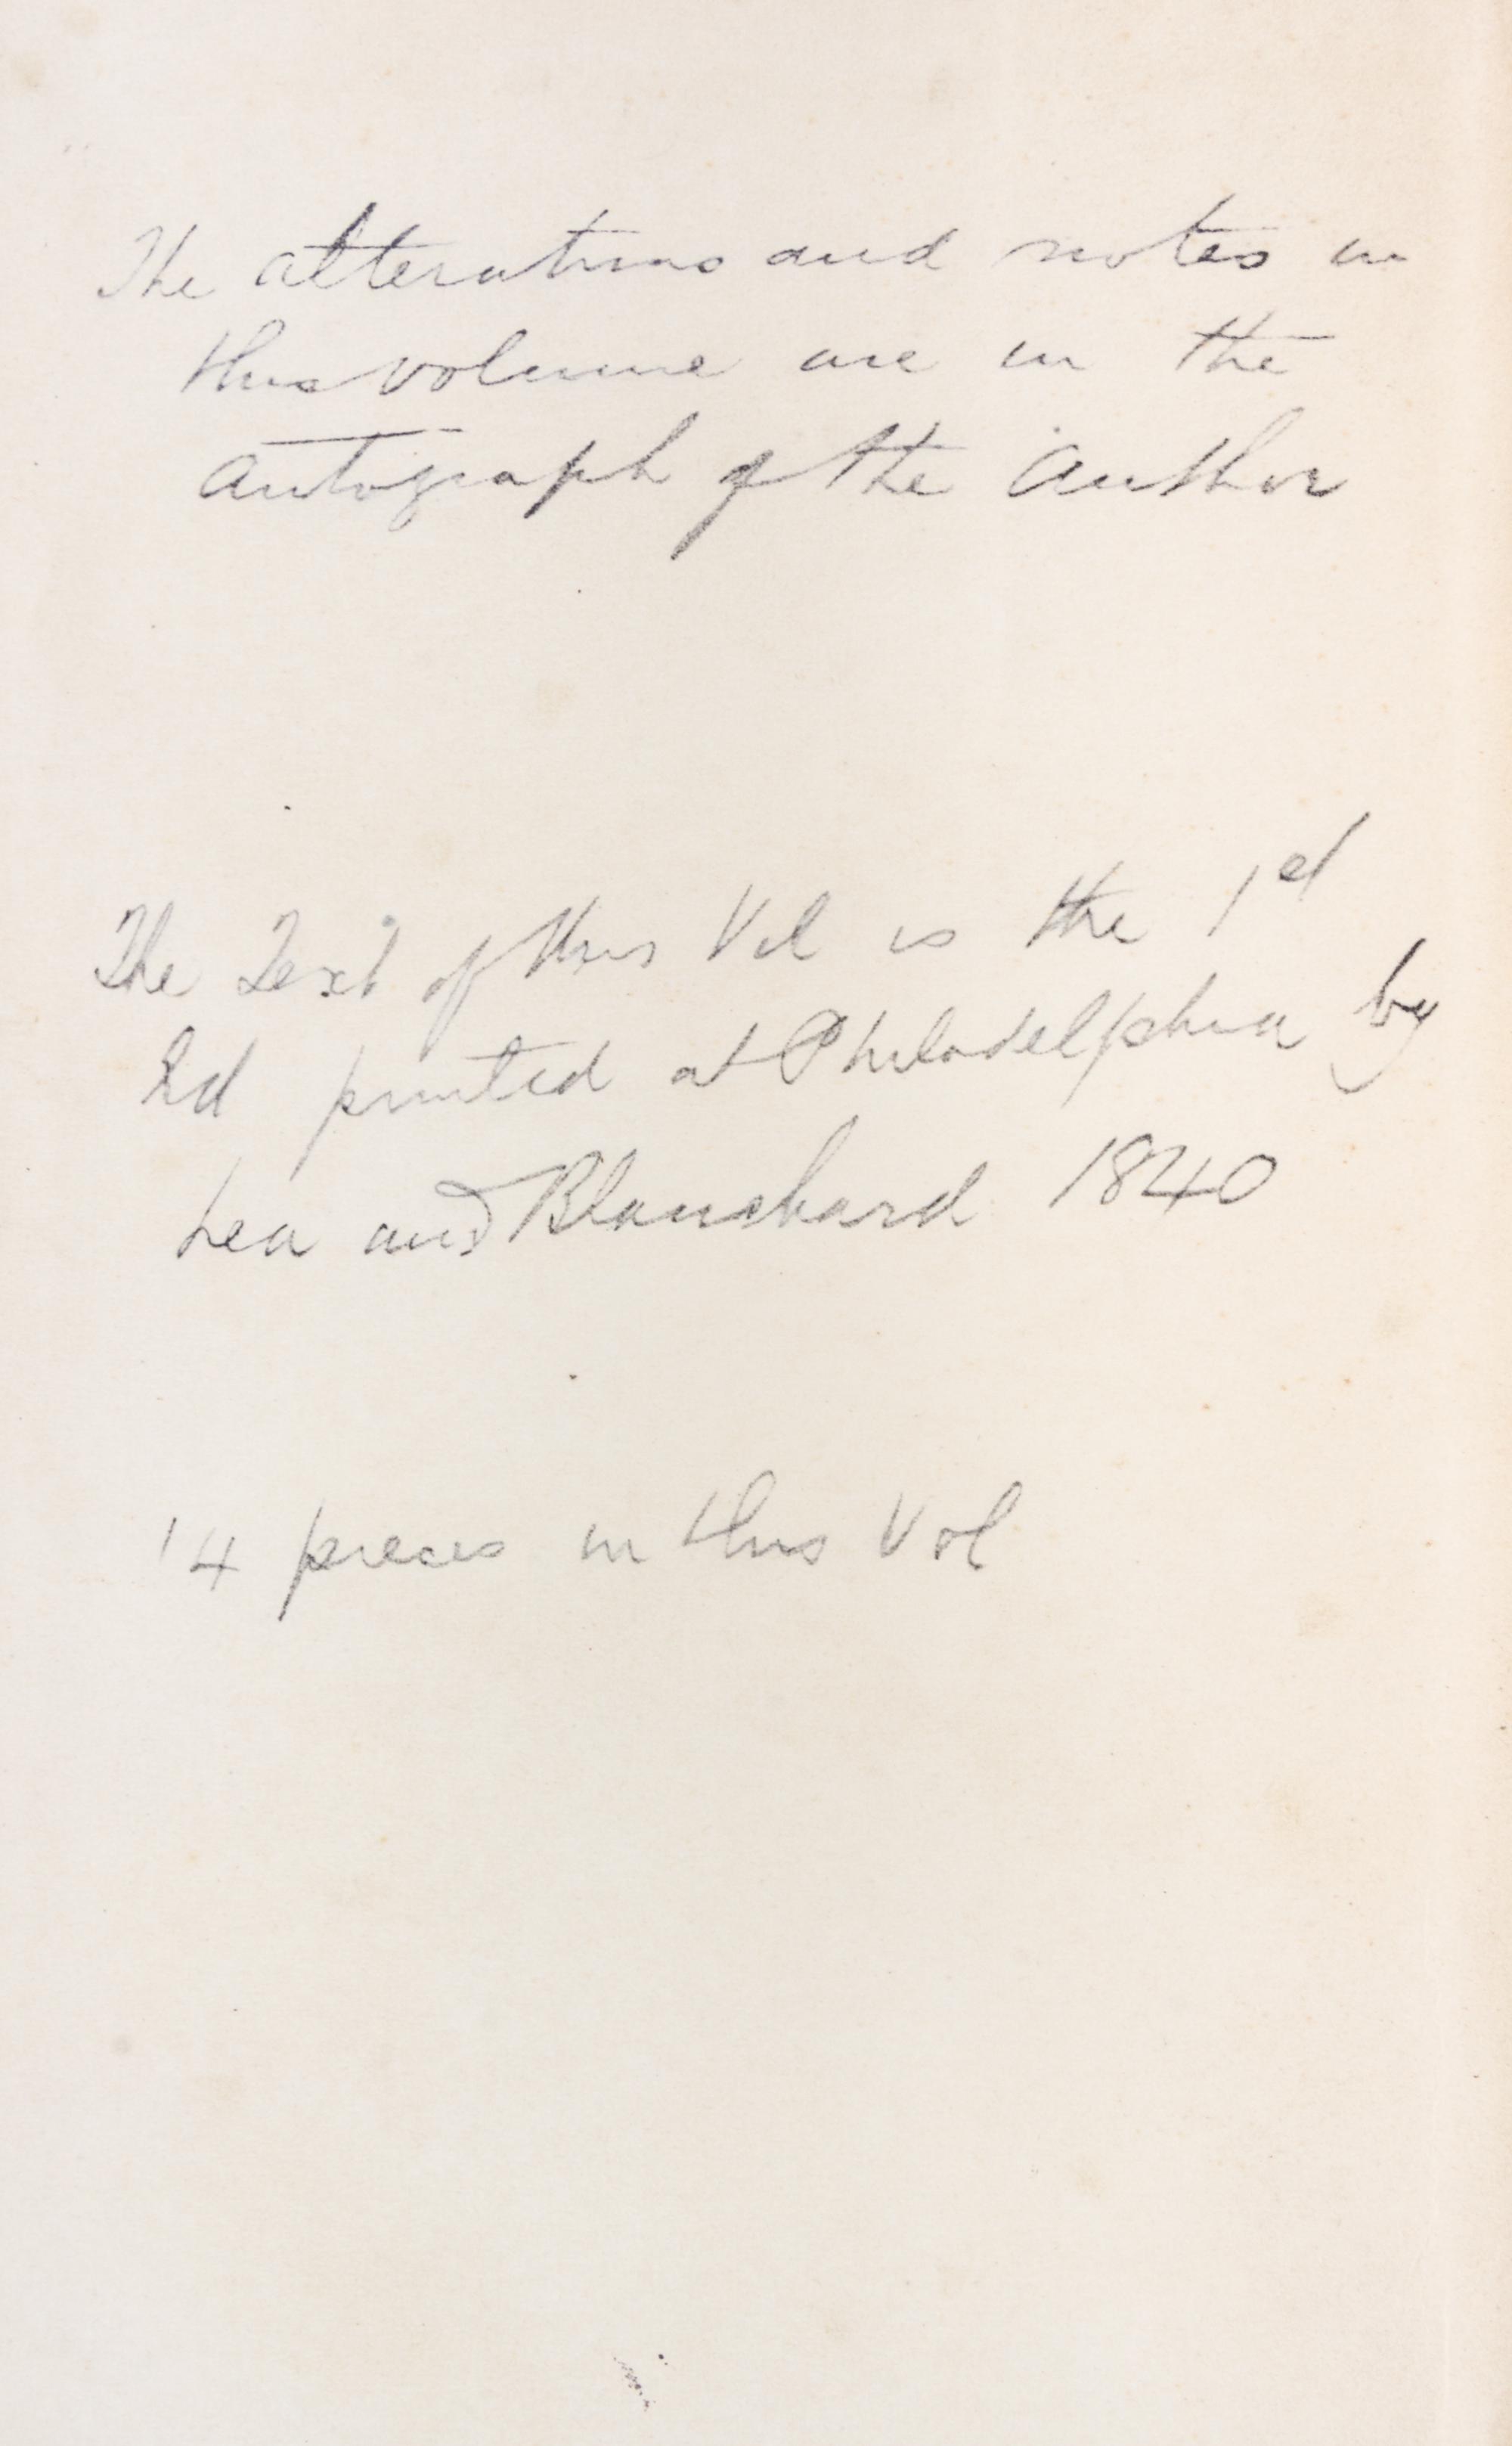 The alterations and notes in
this volume are in the
autograph of the Author
The Text of this Vol is the 1ed
Ed printed at Philadelphia by
Lea and Blanchard 1840
14 pieces in this Vol